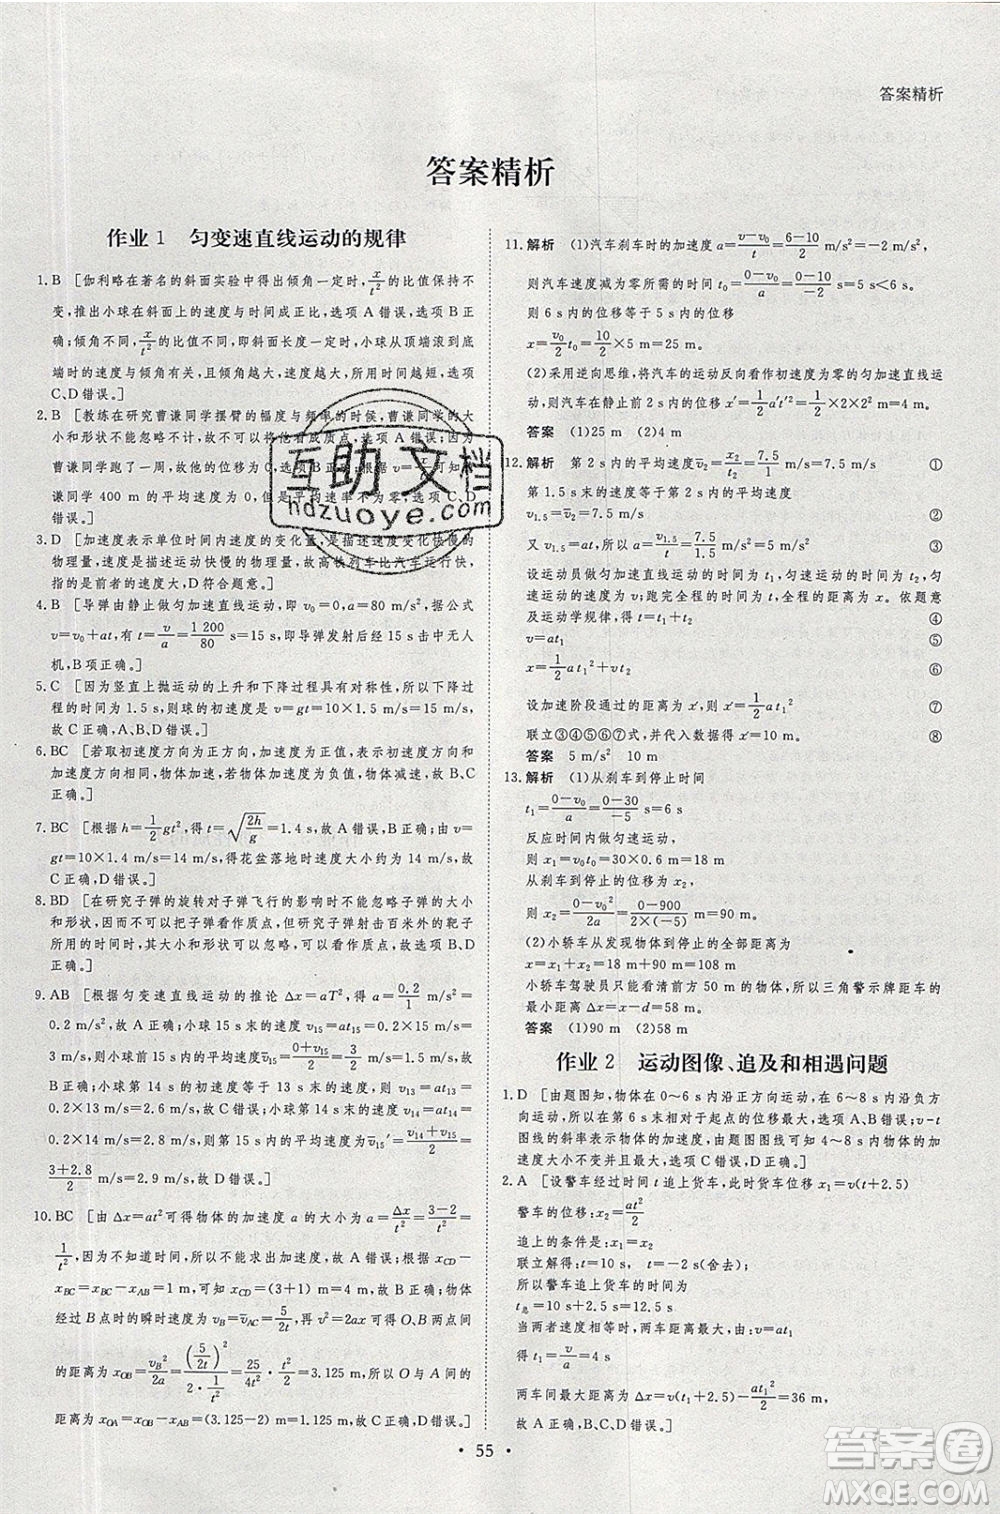 答案精析
答案精析
作业1 匀变速直线运动的规律
1. B [伽利略在著名的斜面实验中得出倾角一定时,x/t²的比值保持不
变,推出小球在斜面上的速度与时间成正比,选项A错误,B正
确;倾角不同,x/t²的比值不同,即斜面长度一定时,小球从顶端到底
端时的速度与倾角有关,倾角越大,速度越大,时间越短,选项
C、D错误。]
2. B [教练在研究曹谦同学摆臂的幅度与频率的时候,曹谦同学的大
小和形状不能忽略不计,不能将他看成质点,选项A错误;
谦同学400 m的平均速度为零,但是平均速率不为零,选项C、D
错误。]
3. D [加速度表示单位时间内速度的变化量,是描述速度变化快慢的
物理量,速度是描述运动快慢的物理量,故高铁刹车比汽车运行快,
指的是前者的速度大,D符合题意。]
4. B [导弹由静止做匀加速直线运动,即v₀=0,a=80 m/s²,据公式
v=v₀+at,有t=v/a=1 200/80 s=15 s,即导弹发射后经15 s击中无人
机,B项正确。]
5. C [因为竖直上抛运动的上升和下降过程具有对称性,所以下降过
程的时间为1.5 s,则球的初速度是v=gt=10×1.5 m/s=15 m/s,
故C正确,A、B、D错误。]
6. BC [若取初速度方向为正方向,加速度为正值,表示初速度方向和
加速度方向相同,物体加速,当加速度为负值,物体减速,故B、C
正确。]
7. BC [根据h=1/2gt²,得t=√(2h/g)=1.4 s,故A错误,B正确;由v=
gt=10×1.4 m/s=14 m/s,得花盆落地时速度大小为14 m/s,故C
正确,D错误。]
8. BD [在研究子弹的旋转对子弹飞行的影响时不能忽略子弹的大小
和形状,不可以把子弹看作质点;研究子弹射击百米外的靶子
所用的时间时,其大小和形状可以忽略,可以看作质点,故选B、D
正确。]
9. AB [根据匀变速直线运动的推论Δx=aT²,可得a=0.2/1 m/s²=
0.2 m/s²,故A正确;小球15 s末的速度v₁₅=at₁₅=0.2×15 m/s=
3 m/s,所以小球在15 s内的平均速度v̄₁₅=(0+v₁₅)/2=3/2 m/s=
1.5 m/s,故B正确,C错误;小球在14 s末的速度v₁₄=at₁₄=
0.2×14 m/s=2.8 m/s,第15 s内的平均速度v̄₁₅′=(v₁₄+v₁₅)/2=
(3+2.8)/2 m/s=2.9 m/s,故D错误。]
10. BC [由Δx=at²可得物体的加速度a的大小为a=Δx/t²=(3-2)/t²=
1/t²,因为不知道时间,所以不能求出加速度,故A错误;根据x_CD-
x_BC=x_BC-x_AB=1 m,可知x_CD=(3+1)m=4 m,故B正确;物体
经过B点时的瞬时速度v_B=v̄_AC=5/2t,再由v²=2ax可得O、B两点间
的距离为x_OB=v_B²/2a=(5/2t)²/(2·1/t²)=25/4t²·t²/2=3.125 m,所以O与A间的
距离为x_OA=x_OB-x_AB=(3.125-2)m=1.125 m,故C正确,D错误。]
11. 解析 (1)汽车刹车时的加速度a=(v-v₀)/t=(6-10)/2 m/s²=-2 m/s²
则汽车速度减为零的时间t₀=(0-v₀)/a=(0-10)/-2 s=5 s<6 s。
则6 s内的位移等于5 s内的位移
x=v₀/2 t₀=10/2×5 m=25 m。
(2)采用逆向思维,将汽车的运动反向看作初速度为零的匀加速直线运
动,则汽车在静止前2 s内通过的位移x′=1/2a′t′²=1/2×2×2² m=4 m。
答案 (1)25 m (2)4 m
12. 解析 第2 s内的平均速度v̄₂=x₂/t₂=7.5/1 m/s=7.5 m/s ①
第1.5 s末的速度等于第2 s内的平均速度
v₁.₅=v̄₂=7.5 m/s ②
又v₁.₅=at₁.₅,所以a=v₁.₅/t₁.₅=7.5/1.5 m/s²=5 m/s² ③
设运动员做匀加速直线运动的时间为t₁,匀速运动的时间为t₂,匀
速运动的速度为v;跑完全程的时间为t,全程的距离为x。依题意
及运动学规律,得t=t₁+t₂ ④
v=at₁ ⑤
x=1/2at₁²+vt₂ ⑥
设加速阶段通过的距离为x′,则x′=1/2at₁² ⑦
联立③④⑤⑥⑦式,并代入数据得:x′=10 m ⑧
答案 5 m/s² 10 m
13. 解析 (1)从刹车到停止时间
t₁=(0-v₀)/a=(0-30)/-5 s=6 s
反应时间内做匀速运动,
则x₁=v₀t₀=30×0.6 m=18 m
从刹车到停止的位移为x₂,
则x₂=(0-v₀²)/2a=(0-900)/(2×(-5)) m=90 m。
(2)小轿车从发现物体到停止的全部距离为
x=x₁+x₂=108 m
小轿车驾驶员只能看清前方50 m的物体,所以三角警示牌距车的
最小距离Δx=x-d=58 m。
答案 (1)90 m (2)58 m
作业2 运动图像、追及和相遇问题
1. D [由题图知,物体在0~6 s内沿正方向运动,在6~8 s内沿负方
向运动,所以在第6 s末相对于起点的位移最大,选项A、B错误;v-t
图线的斜率表示物体的加速度,由题图图线可知4~8 s内的加速
度大小不变并且方向相同,选项C错误,D正确。]
2. A [设警车经过时间t追上货车,货车位移x₁=v(t+2.5)
警车的位移:x₂=at²/2
追上的条件是:x₁=x₂
联立解得:t=10 s,t=-2 s(舍去);
所以警车追上货车的时间为
t总=10 s+2.5 s=12.5 s
当两者速度相等时,两车距离最大,由v=at₁
得t₁=v/a=4 s
两车间最大距离为Δx=v(t₁+2.5)-at₁²/2=36 m,
故A正确,B、C、D错误。]
55
互助文档
hdzuoye.com
答案圈
MXQE.COM